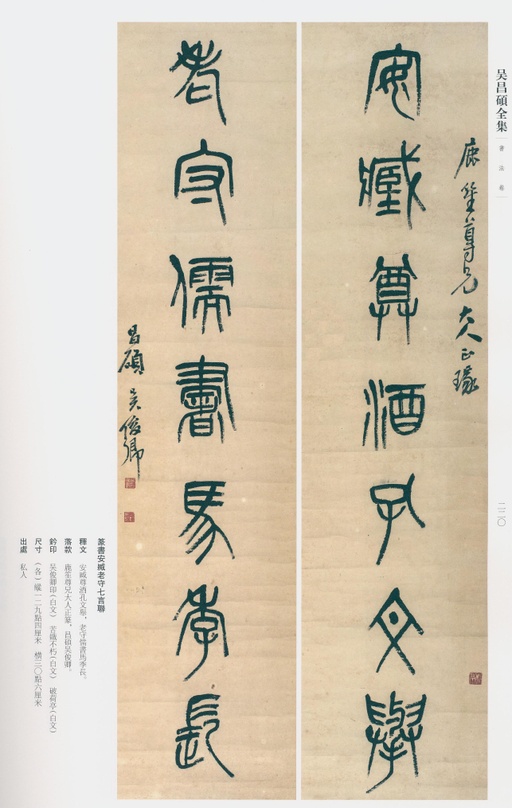 吴昌碩全集
書法卷
鹿笙尊兄大人正瑑
安臧尊酒孔文舉
老守儒書馬季長
昌碩吴俊卿
二二〇
篆書安臧老守七言聯
釋文 安臧尊酒孔文舉，老守儒書馬季長。
落款 鹿笙尊兄大人正篆，昌碩吴俊卿。
鈐印 吴俊卿印(白文) 苦鐵不朽(白文) 破荷亭(白文)
尺寸 (各)縱一二九點四厘米 橫三〇點六厘米
出處 私人